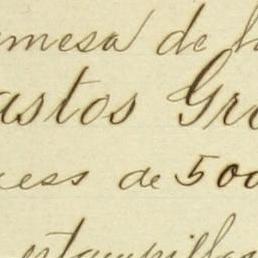 mesa de
astos Gra
cess de 500
estampillas